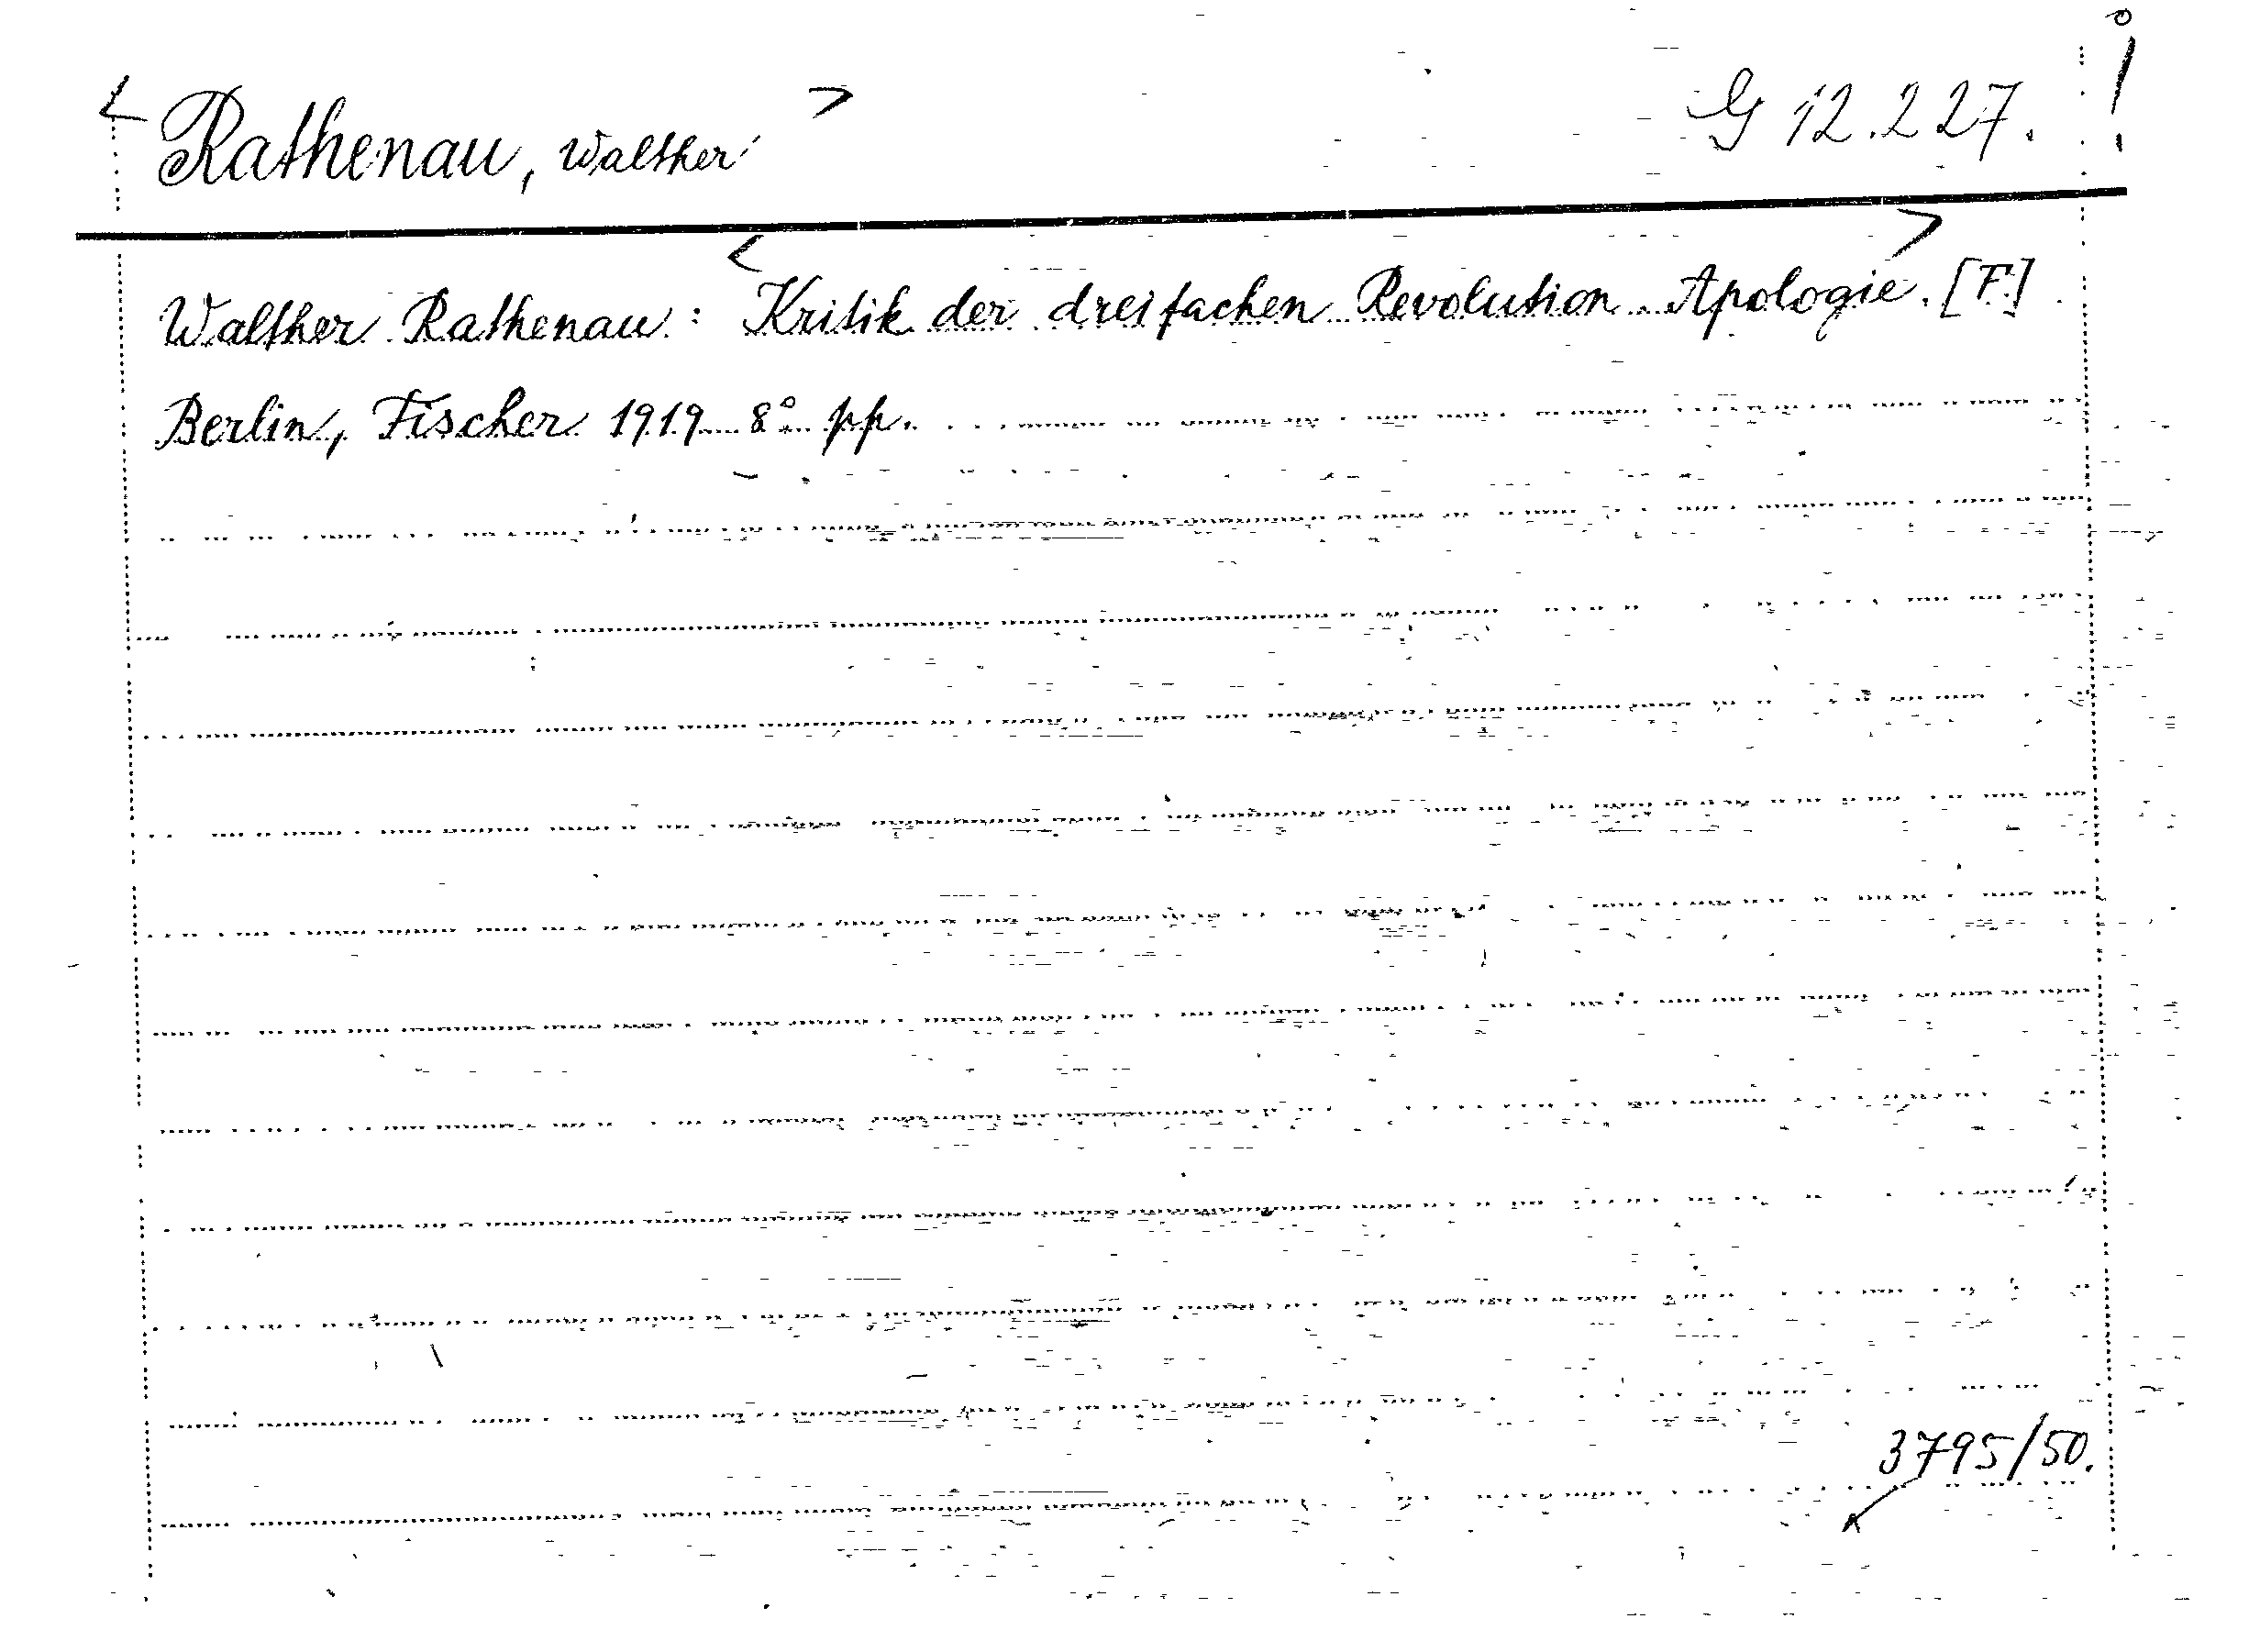 <Rathenau, Walther> G 12.227.
Walther Rathenau: <Kritik der dreifachen Revolution. Apologie.> [F]
Berlin, Fischer 1919 8° pp.
3795/50.